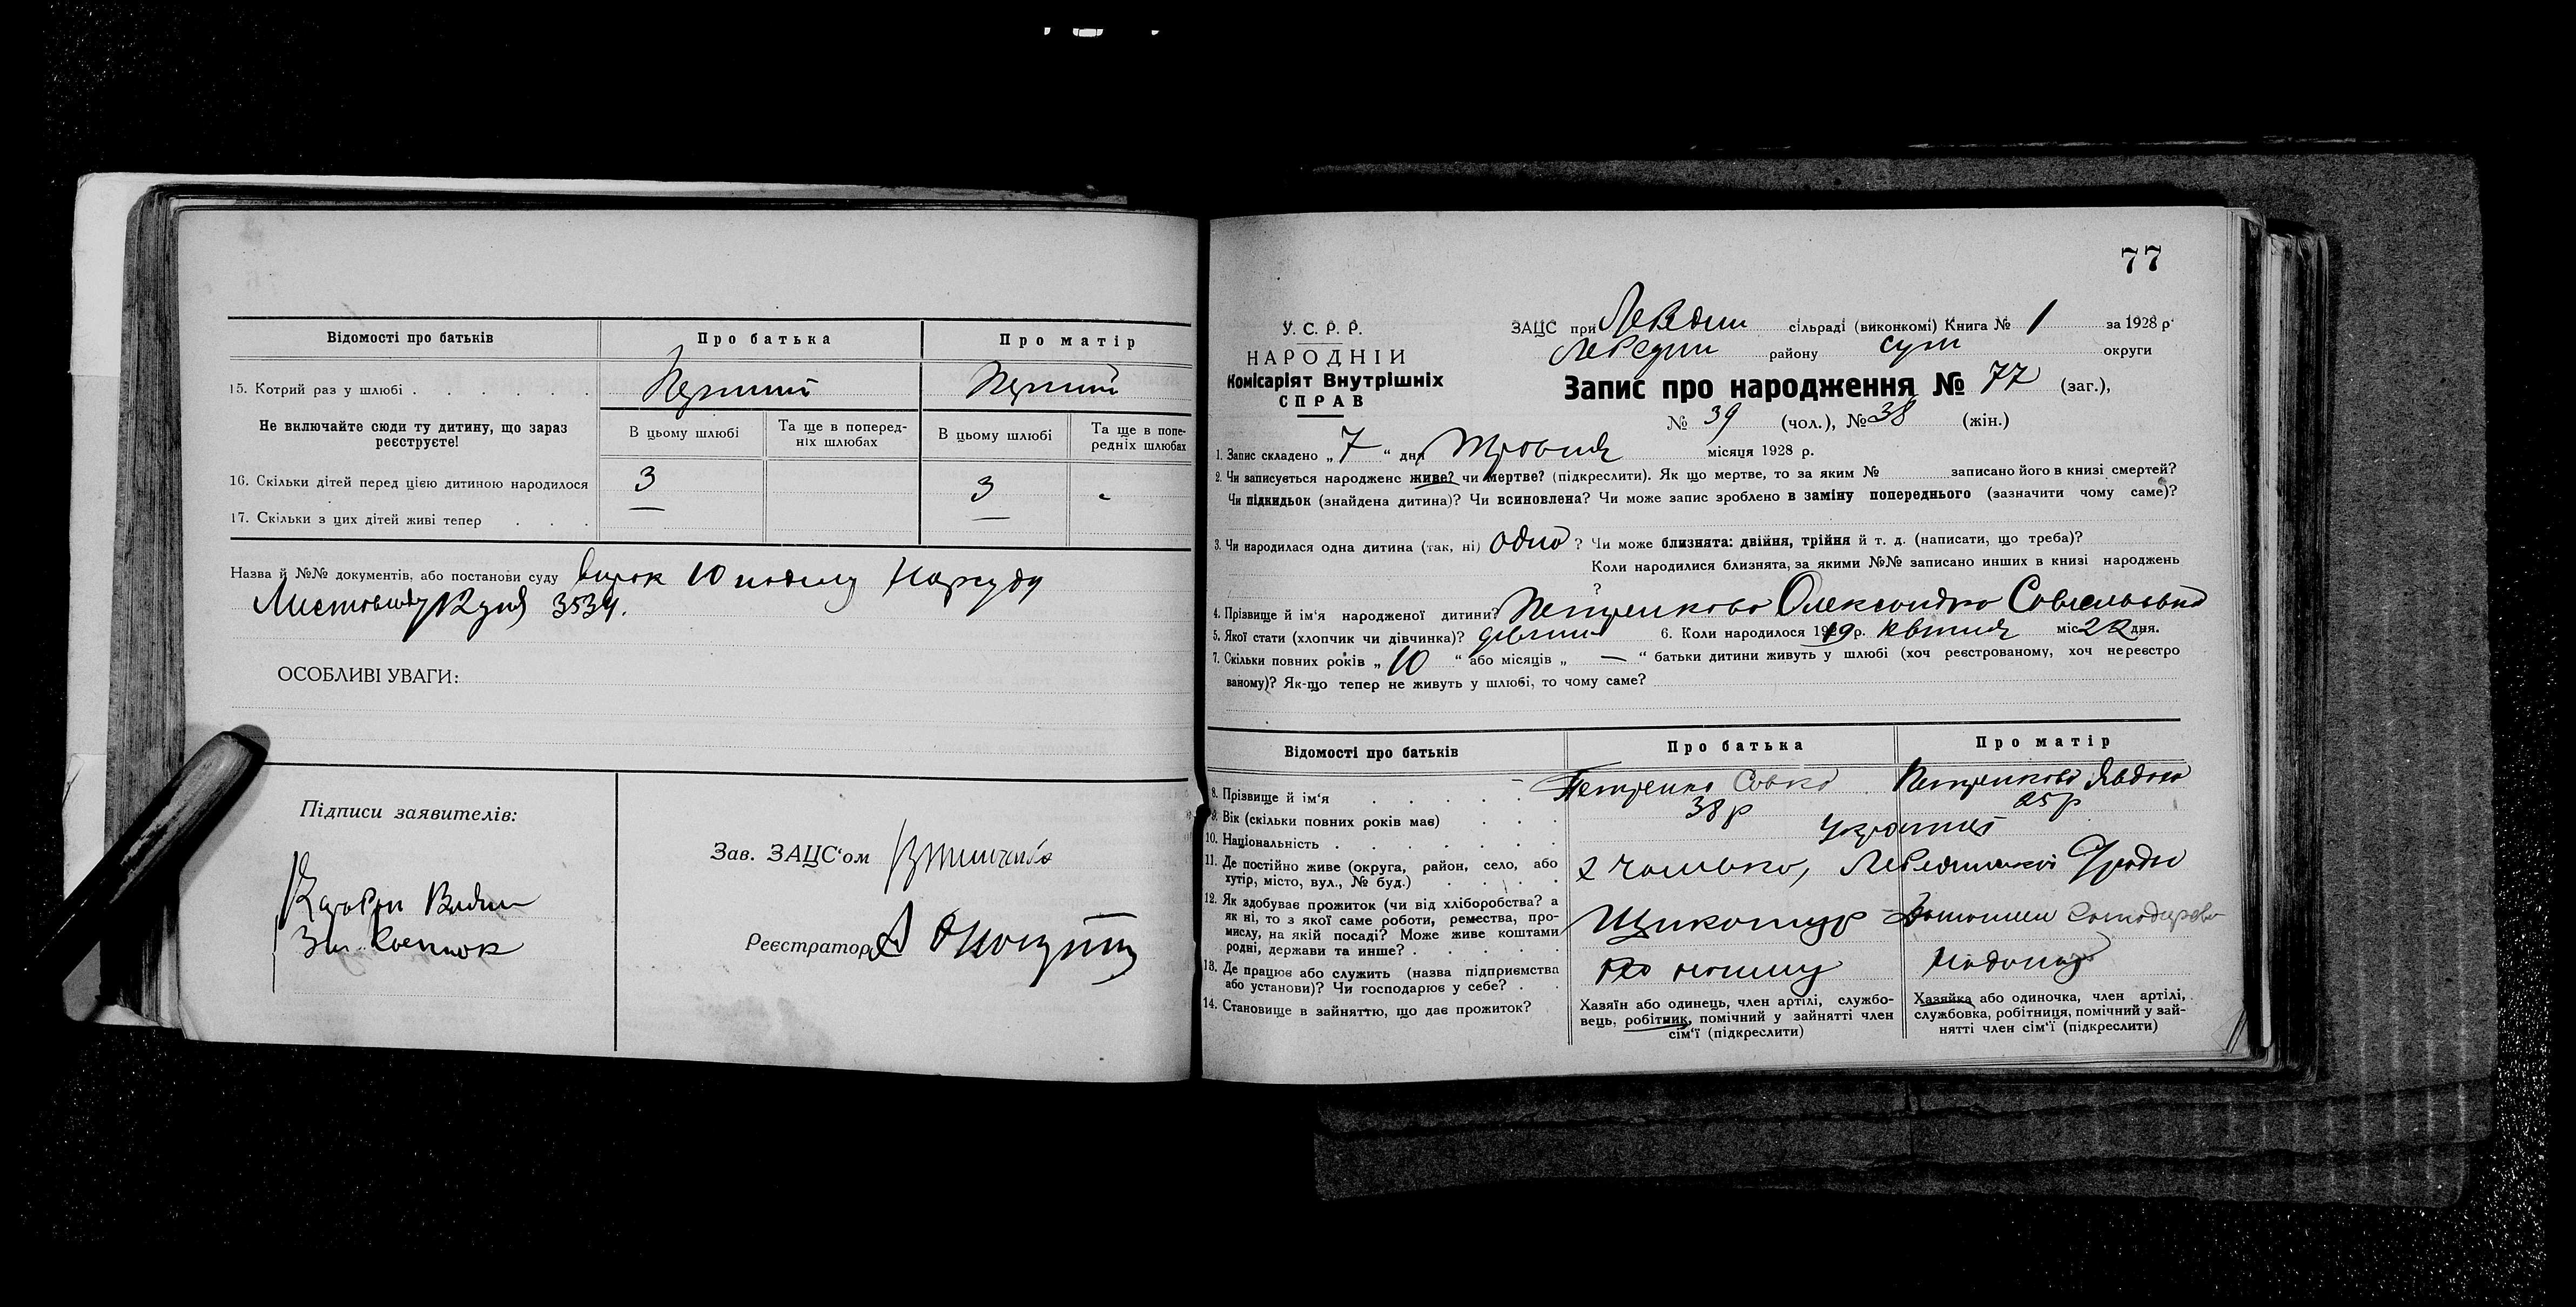 Відомості про батьків
Про батька
Про матір
15. Котрий раз у шлюбі
Перший
Перший
Не включайте сюди ту дитину, що зараз
реєструєте!
В цьому шлюбі
Та ще в поперед-
ніх шлюбах
В цьому шлюбі
Та ще в попе-
редніх шлюбах
16. Скільки дітей перед цією дитиною народилося
3
3
17. Скільки з цих дітей живі тепер
—
—
Назва й №№ документів, або постанови суду
3534.
ОСОБЛИВІ УВАГИ:
Підписи заявителів:
Зав. ЗАЦС‘ом
Реєстратор
77
У. С. Р. Р.
НАРОДНІЙ
Комісаріят Внутрішніх
СПРАВ
ЗАЦС при Лебедин сільраді (виконкомі) Книга № 1 за 1928 р.
Лебедин району Сум округи
Запис про народження № 77 (заг.),
№ 39 (чол.), № 38 (жін.)
1. Запис складено „ 7 “ дня Травня місяця 1928 р.
2. Чи записується народжене живе? чи мертве? (підкреслити). Як що мертве, то за яким № записано його в книзі смертей?
Чи підкидьок (знайдена дитина)? Чи всиновлена? Чи може запис зроблено в заміну попереднього (зазначити чому саме)?
3. Чи народилася одна дитина (так, ні) одна ? Чи може близнята: двійня, трійня й т. д. (написати, що треба)?
Коли народилися близнята, за якими №№ записано инших в книзі народжень
?
4. Прізвище й ім‘я народженої дитини? Петренкова Олександра Савельовна
5. Якої стати (хлопчик чи дівчинка)? дівчин 6. Коли народилося 1919 р. квітня міс 22 дня.
7. Скільки повних років „ 10 “ або місяців „ — “ батьки дитини живуть у шлюбі (хоч реєстрованому, хоч нереєстро
ваному)? Як-що тепер не живуть у шлюбі, то чому саме?
Відомості про батьків
Про батька
Про матір
8. Прізвище й ім‘я
Петренко Савка
Петренкова Явдоха
9. Вік (скільки повних років має)
38 р
25 р
10. Національність
україн
11. Де постійно живе (округа, район, село, або
хутір, місто, вул., № буд.)
12. Як здобуває прожиток (чи від хліборобства? а
як ні, то з якої саме роботи, ремества, про-
мислу, на якій посаді? Може живе коштами
родні, держави та инше?
Щикотур
Домашнем
13. Де працює або служить (назва підприємства
або установи)? Чи господарює у себе?
по найму
14. Становище в зайняттю, що дає прожиток?
Хазяїн або одинець, член артілі, службо-
вець, робітник, помічний у зайнятті член
сім‘ї (підкреслити)
Хазяйка або одиночка, член артілі,
службовка, робітниця, помічний у зай-
нятті член сім‘ї (підкреслити)